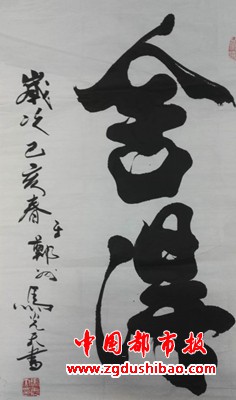 舍得
歲次己亥春于鄭州馬光天書
中国都市报
www.zgdushibao.com